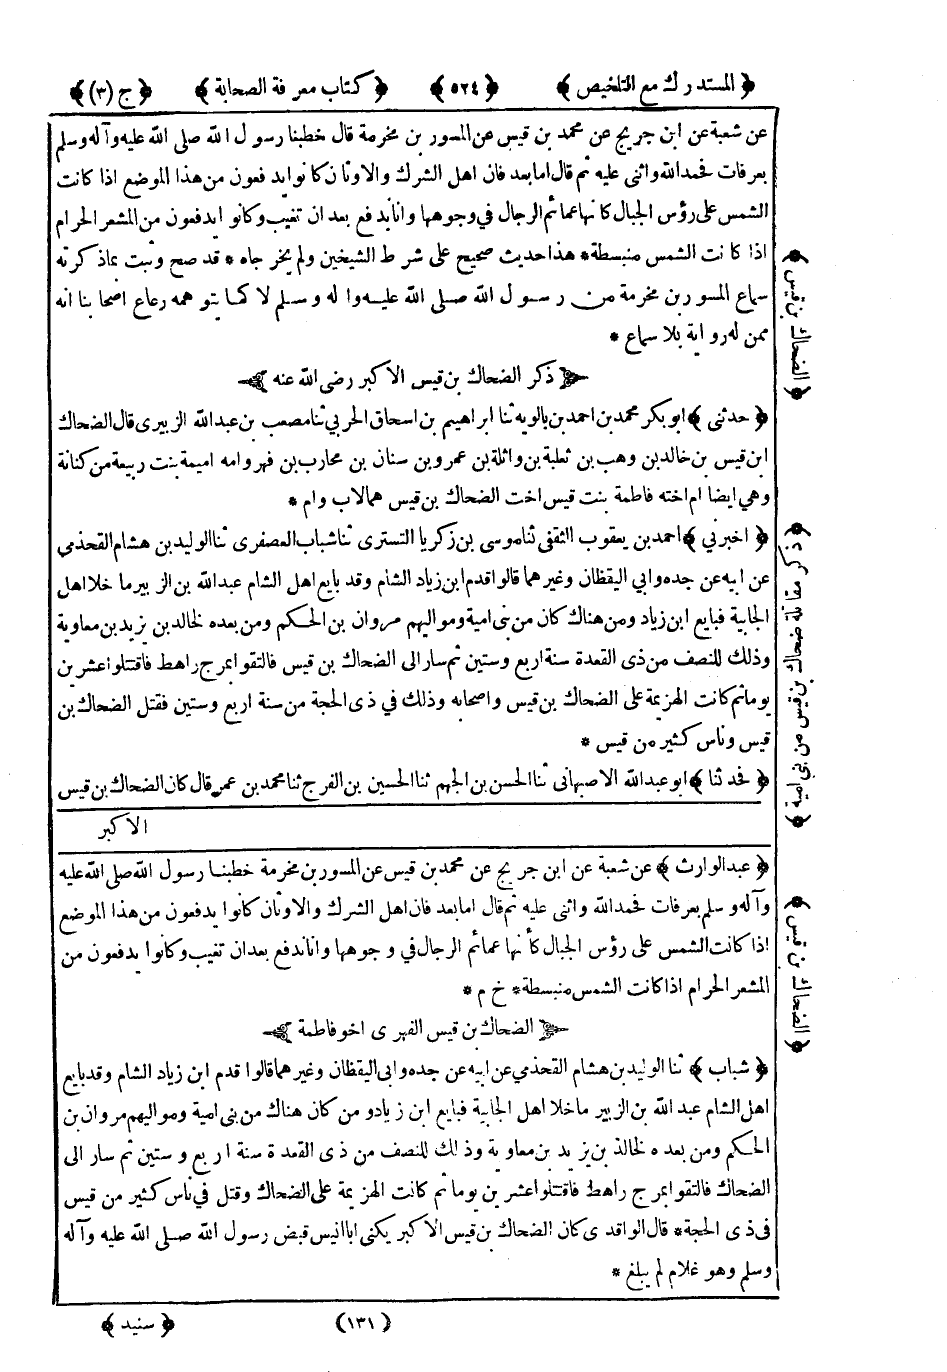 ﴿ المستدرك مع التلخيص ﴾ ﴿ ٥٢٤ ﴾ ﴿ كتاب معرفة الصحابة ﴾ ﴿ ج (٣) ﴾
عن شعبة عن ابن جريج عن محمد بن قيس عن المسور بن مخرمة قال خطبنا رسول الله صلى الله عليه وآله وسلم
بعرفات فحمد الله واثنى عليه ثم قال اما بعد فان اهل الشرك والاوثان كانوا يدفعون من هذا الموضع اذا كانت
الشمس على رؤس الجبال كانها عمائم الرجال في وجوهها وانا ندفع بعد ان تغيب وكانوا يدفعون من المشعر الحرام
اذا كانت الشمس منبسطة * هذا حديث صحيح على شرط الشيخين ولم يخرجاه * قد صح وثبت بما ذكرته
سماع المسور بن مخرمة من رسول الله صلى الله عليه واله وسلم لا كما يتوهمه رعاع اصحابنا انه
ممن له رواية بلا سماع *
ذكر الضحاك بن قيس الاكبر رضى الله عنه
﴿ حدثنى ﴾ ابو بكر محمد بن احمد بن بالويه ثنا ابراهيم بن اسحاق الحربي ثنا مصعب بن عبد الله الزبيرى قال الضحاك
ابن قيس بن خالد بن وهب بن ثعلبة بن واثلة بن عمرو بن سنان بن محارب بن فهر وامه اميمة بنت ربيعة من كنانة
وهي ايضا ام اخته فاطمة بنت قيس اخت الضحاك بن قيس هما لاب وام *
﴿ اخبرني ﴾ احمد بن يعقوب الثقفى ثنا موسى بن زكريا التسترى ثنا شباب العصفرى ثنا الوليد بن هشام القحذمي
عن ابيه عن جده وابي اليقظان وغيرهما قالوا قدم ابن زياد الشام وقد بايع اهل الشام عبد الله بن الزبير ما خلا اهل
الجابية فبايع ابن زياد ومن هناك كان من بنى امية ومواليهم مروان بن الحكم ومن بعده لخالد بن يزيد بن معاوية
وذلك للنصف من ذى القعدة سنة اربع وستين ثم سار الى الضحاك بن قيس فالتقوا بمرج راهط فاقتتلوا عشرين
يوما ثم كانت الهزيمة على الضحاك بن قيس واصحابه وذلك في ذى الحجة من سنة اربع وستين فقتل الضحاك بن
قيس وناس كثير من قيس *
﴿ فحدثنا ﴾ ابو عبد الله الاصبهانى ثنا الحسن بن الجهم ثنا الحسين بن الفرج ثنا محمد بن عمر قال كان الضحاك بن قيس
الاكبر
﴿ عبد الوارث ﴾ عن شعبة عن ابن جريج عن محمد بن قيس عن المسور بن مخرمة خطبنا رسول الله صلى الله عليه
وآله وسلم بعرفات فحمد الله واثنى عليه ثم قال اما بعد فان اهل الشرك والاوثان كانوا يدفعون من هذا الموضع
اذا كانت الشمس على رؤس الجبال كأنها عمائم الرجال في وجوهها وانا ندفع بعد ان تغيب وكانوا يدفعون من
المشعر الحرام اذا كانت الشمس منبسطة * خ م *
الضحاك بن قيس الفهرى اخو فاطمة
﴿ شباب ﴾ ثنا الوليد بن هشام القحذمي عن ابيه عن جده وابى اليقظان وغيرهما قالوا قدم ابن زياد الشام وقد بايع
اهل الشام عبد الله بن الزبير ما خلا اهل الجابية فبايع ابن زياد و من كان هناك من بنى امية ومواليهم مروان بن
الحكم ومن بعده لخالد بن يزيد بن معاوية وذلك للنصف من ذى القعدة سنة اربع وستين ثم سار الى
الضحاك فالتقوا بمرج راهط فاقتتلوا عشرين يوما ثم كانت الهزيمة على الضحاك وقتل في ناس كثير من قيس
فى ذى الحجة * قال الواقدى كان الضحاك بن قيس الاكبر يكنى ابا انيس قبض رسول الله صلى الله عليه وآله
وسلم وهو غلام لم يبلغ *
﴿ الضحاك بن قيس ﴾
﴿ ذكر مقاتلة ضحاك بن قيس من بني امية ﴾
﴿ الضحاك بن قيس ﴾
(١٣١) ﴿ سنيد ﴾